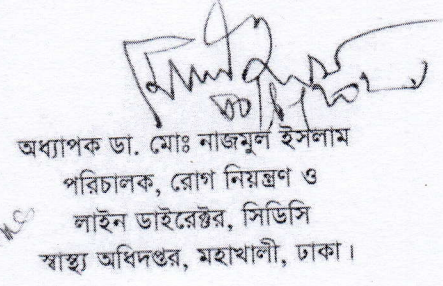 অধ্যাপক ডা. মোঃ নাজমুল ইসলাম
পরিচালক, রোগ নিয়ন্ত্রণ ও
লাইন ডাইরেক্টর, সিডিসি
স্বাস্থ্য অধিদপ্তর, মহাখালী, ঢাকা।